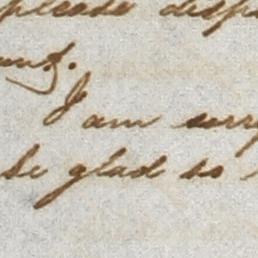 please disp
I am sorry
be glad to